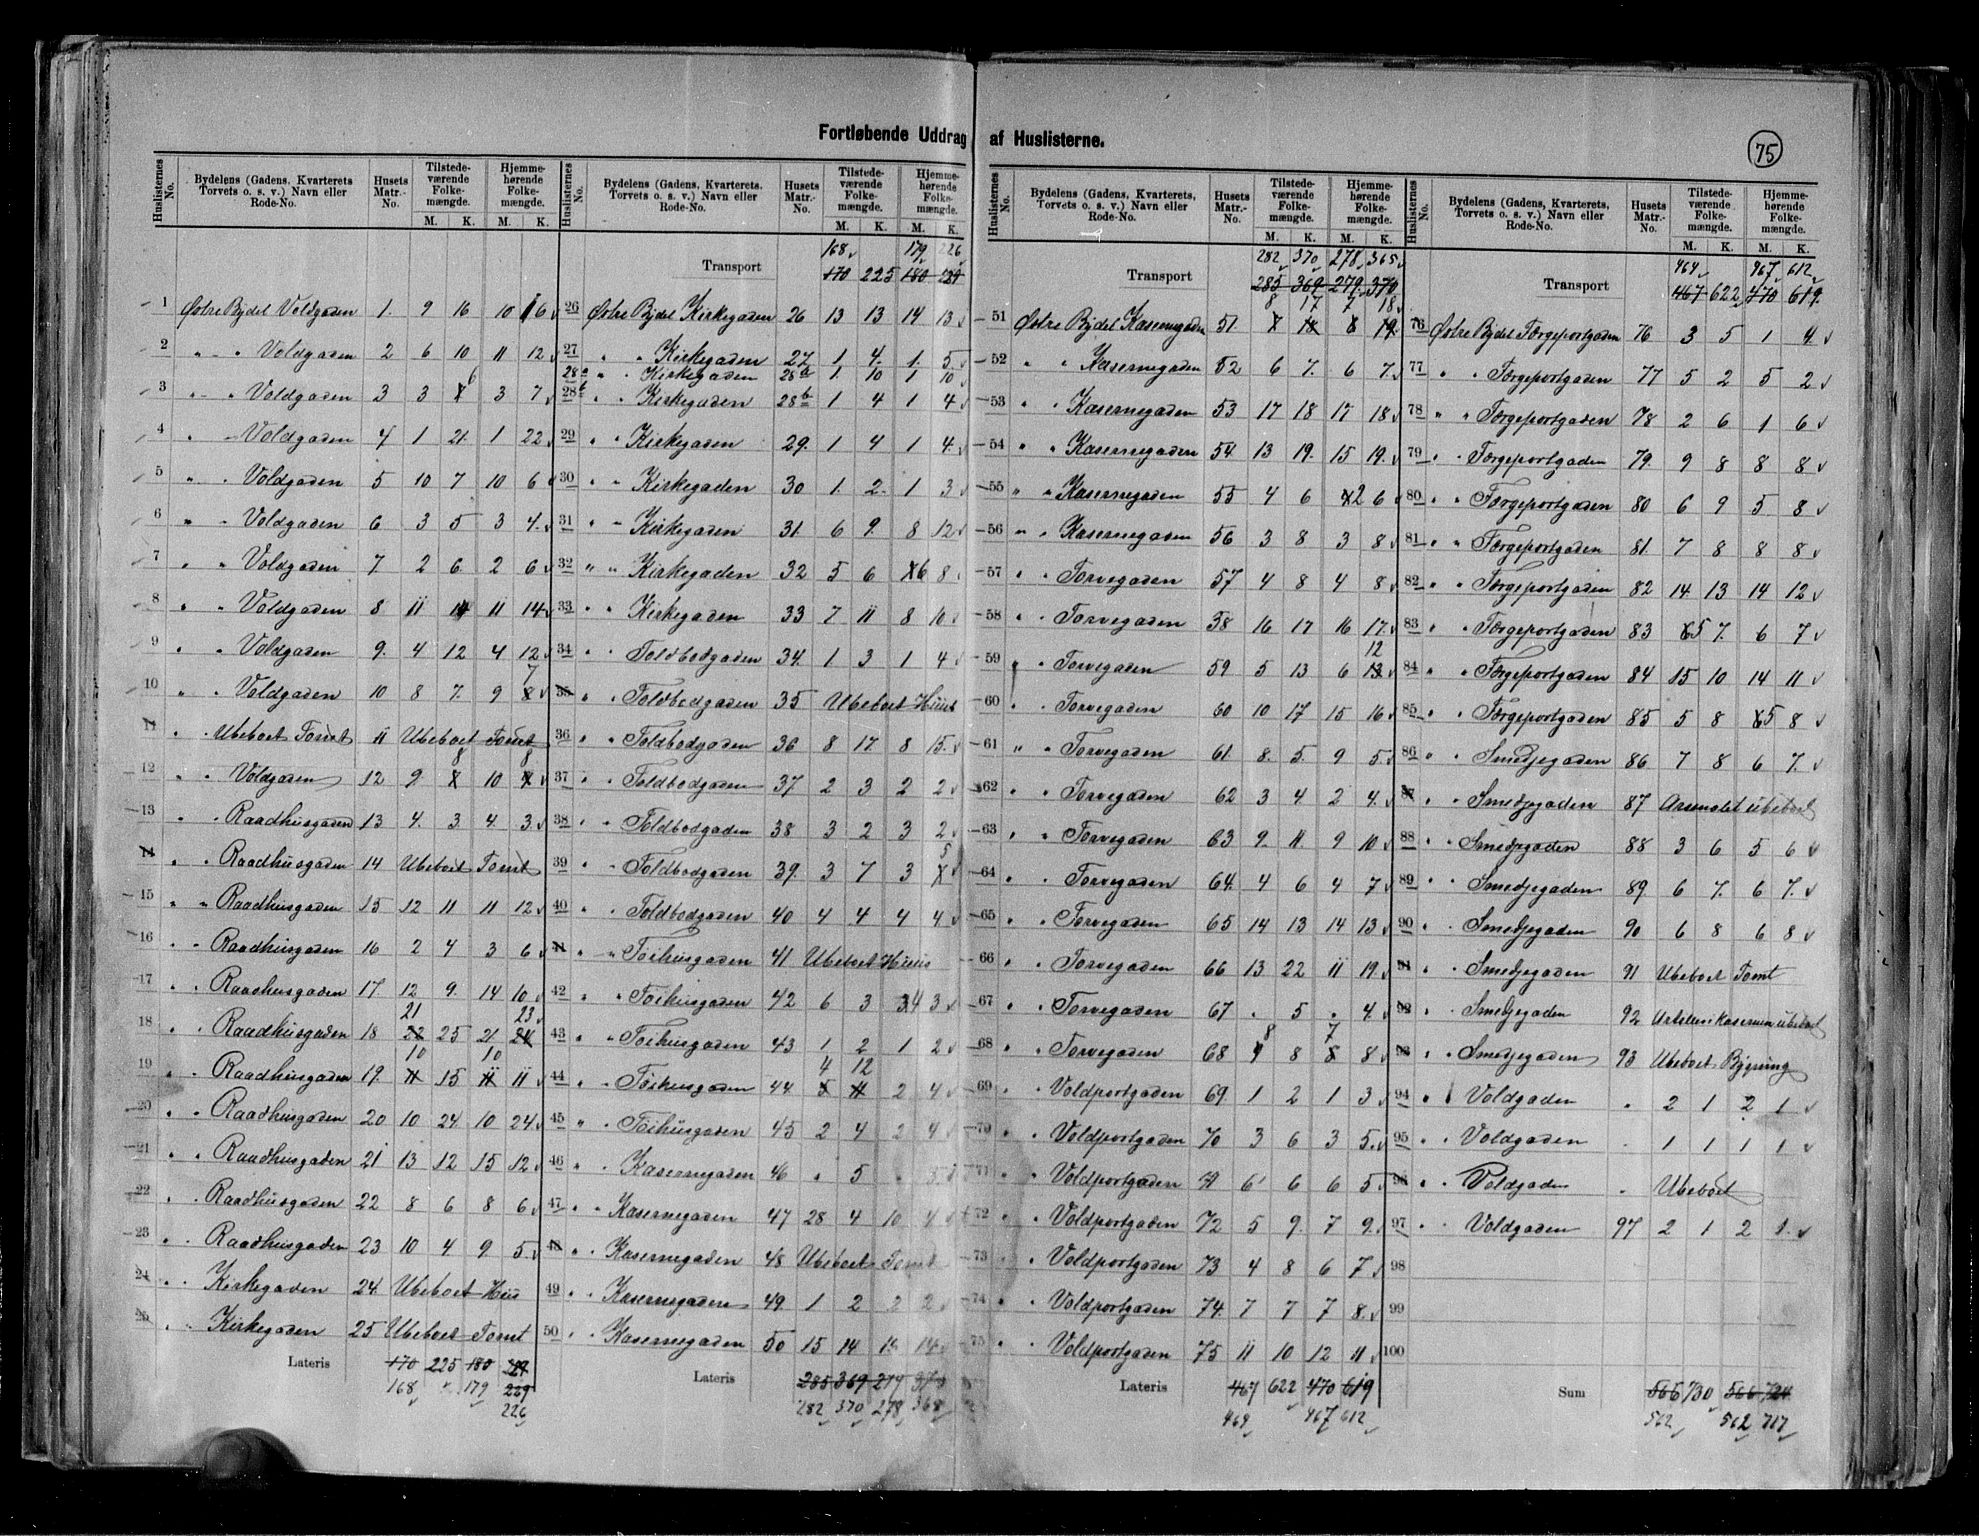 Fortløbende Uddrag af Huslisterne.
75
Huslisternes No. Bydelens (Gadens, Kvarterets, Torvets o. s. v.) Navn eller Rode-No. Husets Matr.-No. Tilstedeværende Folkemængde. M. K. Hjemmehørende Folkemængde. M. K.
1 Østre Bydel Voldgaden 1. 9 16 10 16
2 " " Voldgaden 2 6 10 11 12
3 " " Voldgaden 3 3 6 3 7
4 " " Voldgaden 4 1 21 1 22
5 " " Voldgaden 5 10 7 10 6
6 " " Voldgaden 6 3 5 3 4
7 " " Voldgaden 7 2 6 2 6
8 " " Voldgaden 8 11 14 11 14
9 " " Voldgaden 9. 4 12 4 12
10 " " Voldgaden 10 8 7 9 7
11 " Ubeboet Tomt 11 Ubeboet Tomt
12 " " Voldgaden 12 9 8 10 8
13 " " Raadhusgaden 13 4 3 4 3
14 " " Raadhusgaden 14 Ubeboet Tomt
15 " " Raadhusgaden 15 12 11 11 12
16 " " Raadhusgaden 16 2 4 3 6
17 " " Raadhusgaden 17. 12 9 14 10
18 " " Raadhusgaden 18 21 25 21 23
19 " " Raadhusgaden 19. 10 15 10 11
20 " " Raadhusgaden 20 10 24 10 24
21 " " Raadhusgaden 21 13 12 15 12
22 " " Raadhusgaden 22 8 6 8 6
23 " " Raadhusgaden 23 10 4 9 5
24 " " Kirkegaden 24 Ubeboet Hus
25 " " Kirkegaden 25 Ubeboet Tomt
Lateris 170 225 180 229
168 179 226
Transport 168 179 226
170 225 180 229
26 Østre Bydel Kirkegaden 26 13 13 14 13
27 " " Kirkegaden 27 1 4 1 5
28a " " Kirkegaden 28a 1 10 1 10
28b " " Kirkegaden 28b 1 4 1 4
29 " " Kirkegaden 29. 1 4 1 4
30 " " Kirkegaden 30 1 2 1 3
31 " " Kirkegaden 31 6 9 8 12
32 " " Kirkegaden 32 5 6 6 8
33 " " Kirkegaden 33 7 11 8 10
34 " " Toldbodgaden 34 1 3 1 4
35 " Toldbodgaden 35 Ubeboet Huus
36 " " Toldbodgaden 36 8 17 8 15
37 " " Toldbodgaden 37 2 3 2 2
38 " " Toldbodgaden 38 3 2 3 2
39 " " Toldbodgaden 39. 3 7 3 5
40 " " Toldbodgaden 40 4 4 4 4
41 " " Töihusgaden 41 Ubeboet Huus
42 " " Töihusgaden 42 6 3 4 3
43 " " Töihusgaden 43 1 2 1 2
44 " " Töihusgaden 44 4 12 2 4
45 " " Töihusgaden 45 2 4 2 4
46 " " Kasernegaden 46 " 5 " 5
47 " " Kasernegaden 47 28 4 10 4
48 " " Kasernegaden 48 Ubeboet Tomt
49 " " Kasernegaden 49. 1 2 2 2
50 " " Kasernegaden 50 15 14 15 14
Lateris 285 369 279 370
282 370 278 368
Transport 282 370 278 365
285 369 279 370
51 Østre Bydel Kasernegaden 51. 8 17 7 18
52 " " Kasernegaden 52 6 7 6 7
53 " " Kasernegaden 53 17 18 17 18
54 " " Kasernegaden 54 13 19 15 19
55 " " Kasernegaden 55 4 6 2 6
56 " " Kasernegaden 56 3 8 3 8
57 " " Torvegaden 57 4 8 4 8
58 " " Torvegaden 58 16 17 16 17
59 " " Torvegaden 59 5 13 6 12
60 " Torvegaden 60 10 17 15 16
61 " " Torvegaden 61 8 5 9 5
62 " " Torvegaden 62 3 4 2 4
63 " " Torvegaden 63 9 11 9 10
64 " " Torvegaden 64 4 6 4 7
65 " " Torvegaden 65 14 13 14 13
66 " " Torvegaden 66 13 22 11 19
67 " " Torvegaden 67 " 5 " 4
68 " " Torvegaden 68 8 8 7 8
69 " " Voldportgaden 69 1 2 1 3
70 " " Voldportgaden 70 3 6 3 5
71 " " Voldportgaden 71 6 6 6 5
72 " " Voldportgaden 72 5 9 7 9
73 " " Voldportgaden 73 4 8 6 7
74 " " Voldportgaden 74 7 7 7 8
75 " Voldportgaden 75 11 10 12 11
Lateris 467 622 470 619
464 467 612
Transport 464 467 612
467 622 470 619
76 Østre Bydel Færgeportgaden 76 3 5 1 4
77 " " Færgeportgaden 77 5 2 5 2
78 " " Færgeportgaden 78 2 6 1 6
79 " " Færgeportgaden 79. 9 8 8 8
80 " " Færgeportgaden 80 6 9 5 8
81 " " Færgeportgaden 81. 7 8 8 8
82 " " Færgeportgaden 82 14 13 14 12
83 " " Færgeportgaden 83 5 7 6 7
84 " " Færgeportgaden 84 15 10 14 11
85 " " Færgeportgaden 85 5 8 5 8
86 " " Smedjegaden 86 7 8 6 7
87 " " Smedjegaden 87 Arsenalet ubeboet
88 " " Smedjegaden 88 3 6 5 6
89 " " Smedjegaden 89 6 7 6 7
90 " " Smedjegaden 90 6 8 6 8
91 " " Smedjegaden 91 Ubeboet Tomt
92 " " Smedjegaden 92 ubeboet
93 " " Smedjegaden 93 Ubeboet Bygning
94 " " Voldgaden " 2 1 2 1
95 " " Voldgaden " 1 1 1 1
96 " " Voldgaden " Ubeboet
97 " " Voldgaden 97 2 1 2 1
98
99
100
Sum 566 730 566 724
562 562 717